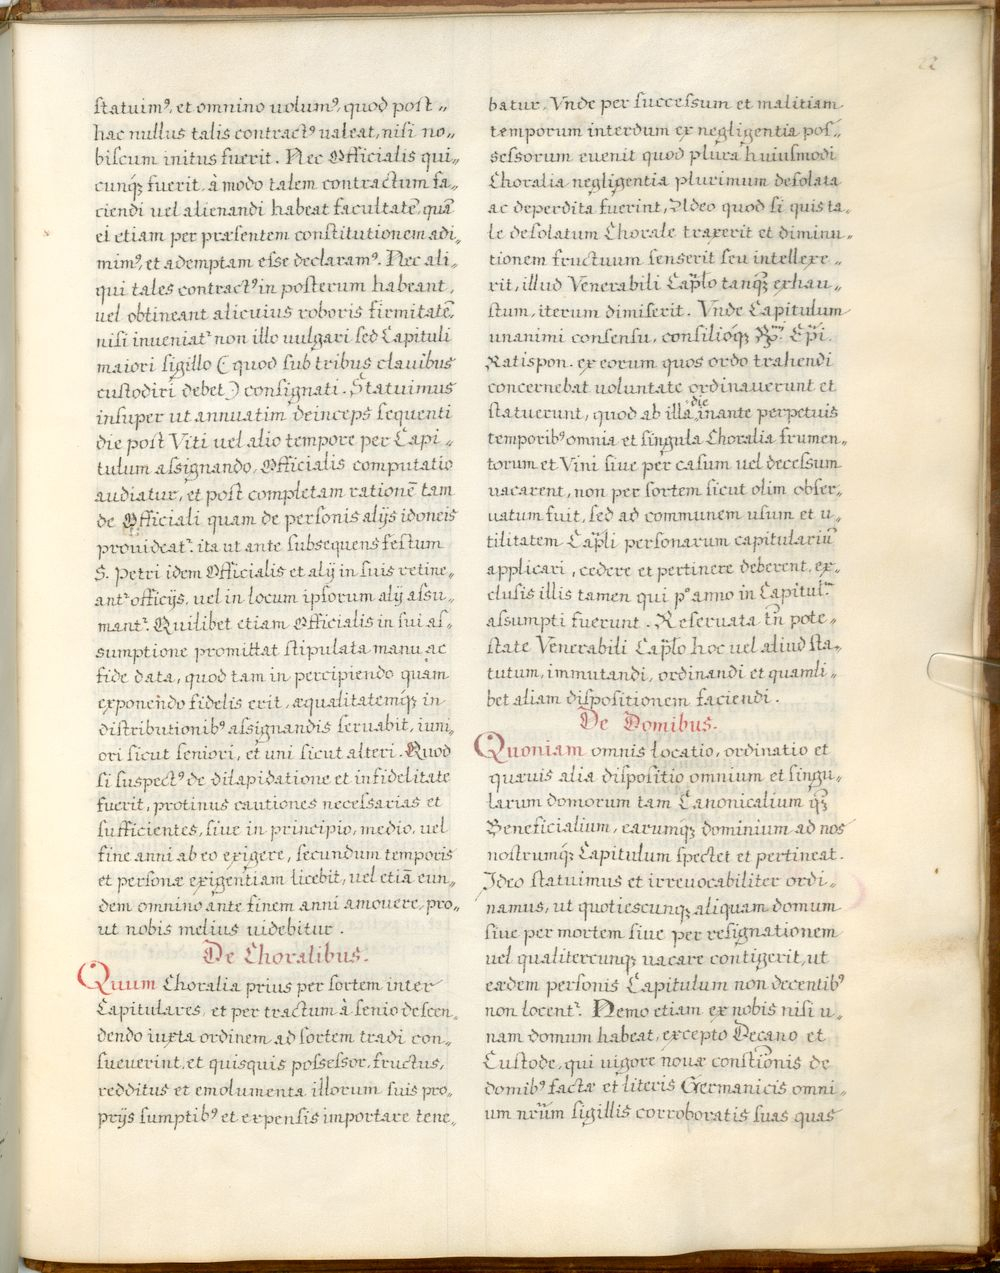 22
statuimꝰ, et omnino uolumꝰ, quod post„
hac nullus talis contractꝰ ualeat, nisi no„
biscum initus fuerit. Nec Officialis qui„
cunqꝫ fuerit, à modo talem contractum fa„
ciendi uel alienandi habeat facultatē, quā
ei etiam per præsentem constitutionem adi„
mimꝰ, et ademptam esse declaramꝰ. Nec ali„
qui tales contractꝰ in posterum habeant,
uel obtineant alicuius roboris firmitatē,
nisi inueniatᷣ non illo uulgari sed Capituli
maiori sigillo (quod sub tribus clauibus
custodiri debet) consignati. Statuimus
insuper ut annuatim deinceps sequenti
die post Viti uel alio tempore per Capi„
tulum assignando, Officialis computatio
audiatur, et post completam rationē tam
de Officiali quam de personis alijs idoneis
prouideatᷣ. ita ut ante subsequens festum
S. Petri idem Officialis et alij in suis retine„
antᷣ officijs, uel in locum ipsorum alij assu„
mantᷣ. Quilibet etiam Officialis in sui as„
sumptione promittat stipulata manu ac
fide data, quod tam in percipiendo quam
exponendo fidelis erit, æqualitatemqꝫ in
distributionibꝰ assignandis seruabit, iuni„
ori sicut seniori, et uni sicut alteri. Quod
si suspectꝰ de dilapidatione et infidelitate
fuerit, protinus cautiones necessarias et
sufficientes, siue in principio, medio, uel
fine anni ab eo exigere, secundum temporis
et personæ exigentiam licebit, uel etiā eun„
dem omnino ante finem anni amouere, pro„
ut nobis melius uidebitur.
De Choralibus.
Quum Choralia prius per sortem inter
Capitulares, et per tractum à senio descen„
dendo iuxta ordinem ad sortem tradi con„
sueuerint, et quisquis possessor, fructus,
redditus et emolumenta illorum suis pro„
prijs sumptibꝰ et expensis importare tene„
batur. Vnde per successum et malitiam
temporum interdum ex negligentia pos„
sessorum euenit quod plura huiusmodi
Choralia negligentia plurimum desolata
ac deperdita fuerint, Adeo quod si quis ta„
le desolatum Chorale traxerit et diminu„
tionem fructuum senserit seu intellexe„
rit, illud Venerabili Cap̄lo tanqꝫ exhau„
stum, iterum dimiserit. Vnde Capitulum
unanimi consensu, consilioqꝫ R̄mi Ep̄i.
Ratispon. ex eorum quos ordo trahendi
concernebat uoluntate ordinauerunt et
statuerunt, quod ab illa die inante perpetuis
temporibꝰ omnia et singula Choralia frumen„
torum et Vini siue per casum uel decessum
uacarent, non per sortem sicut olim obser„
uatum fuit, sed ad communem usum et u„
tilitatem Cap̄li personarum capitulariū
applicari, cedere et pertinere deberent, ex„
clusis illis tamen qui pº anno in Capitulᷣ
assumpti fuerunt. Reseruata tn̄ pote„
state Venerabili Cap̄lo hoc uel aliud sta„
tutum, immutandi, ordinandi et quamli„
bet aliam dispositionem faciendi.
De Domibus.
Quoniam omnis locatio, ordinatio et
quæuis alia dispositio omnium et singu„
larum domorum tam Canonicalium qꝫ
Beneficialium, earumqꝫ dominium ad nos
nostrumqꝫ Capitulum spectet et pertineat.
Ideo statuimus et irreuocabiliter ordi„
namus, ut quotiescunqꝫ aliquam domum
siue per mortem siue per resignationem
uel qualitercunqꝫ uacare contigerit, ut
eædem personis Capitulum non decentibꝰ
non locentᷣ. Nemo etiam ex nobis nisi u„
nam domum habeat, excepto Decano et
Custode, qui uigore nouæ constīonis de
domibꝰ factæ et literis Germanicis omni„
um nr̄um sigillis corroboratis suas quas